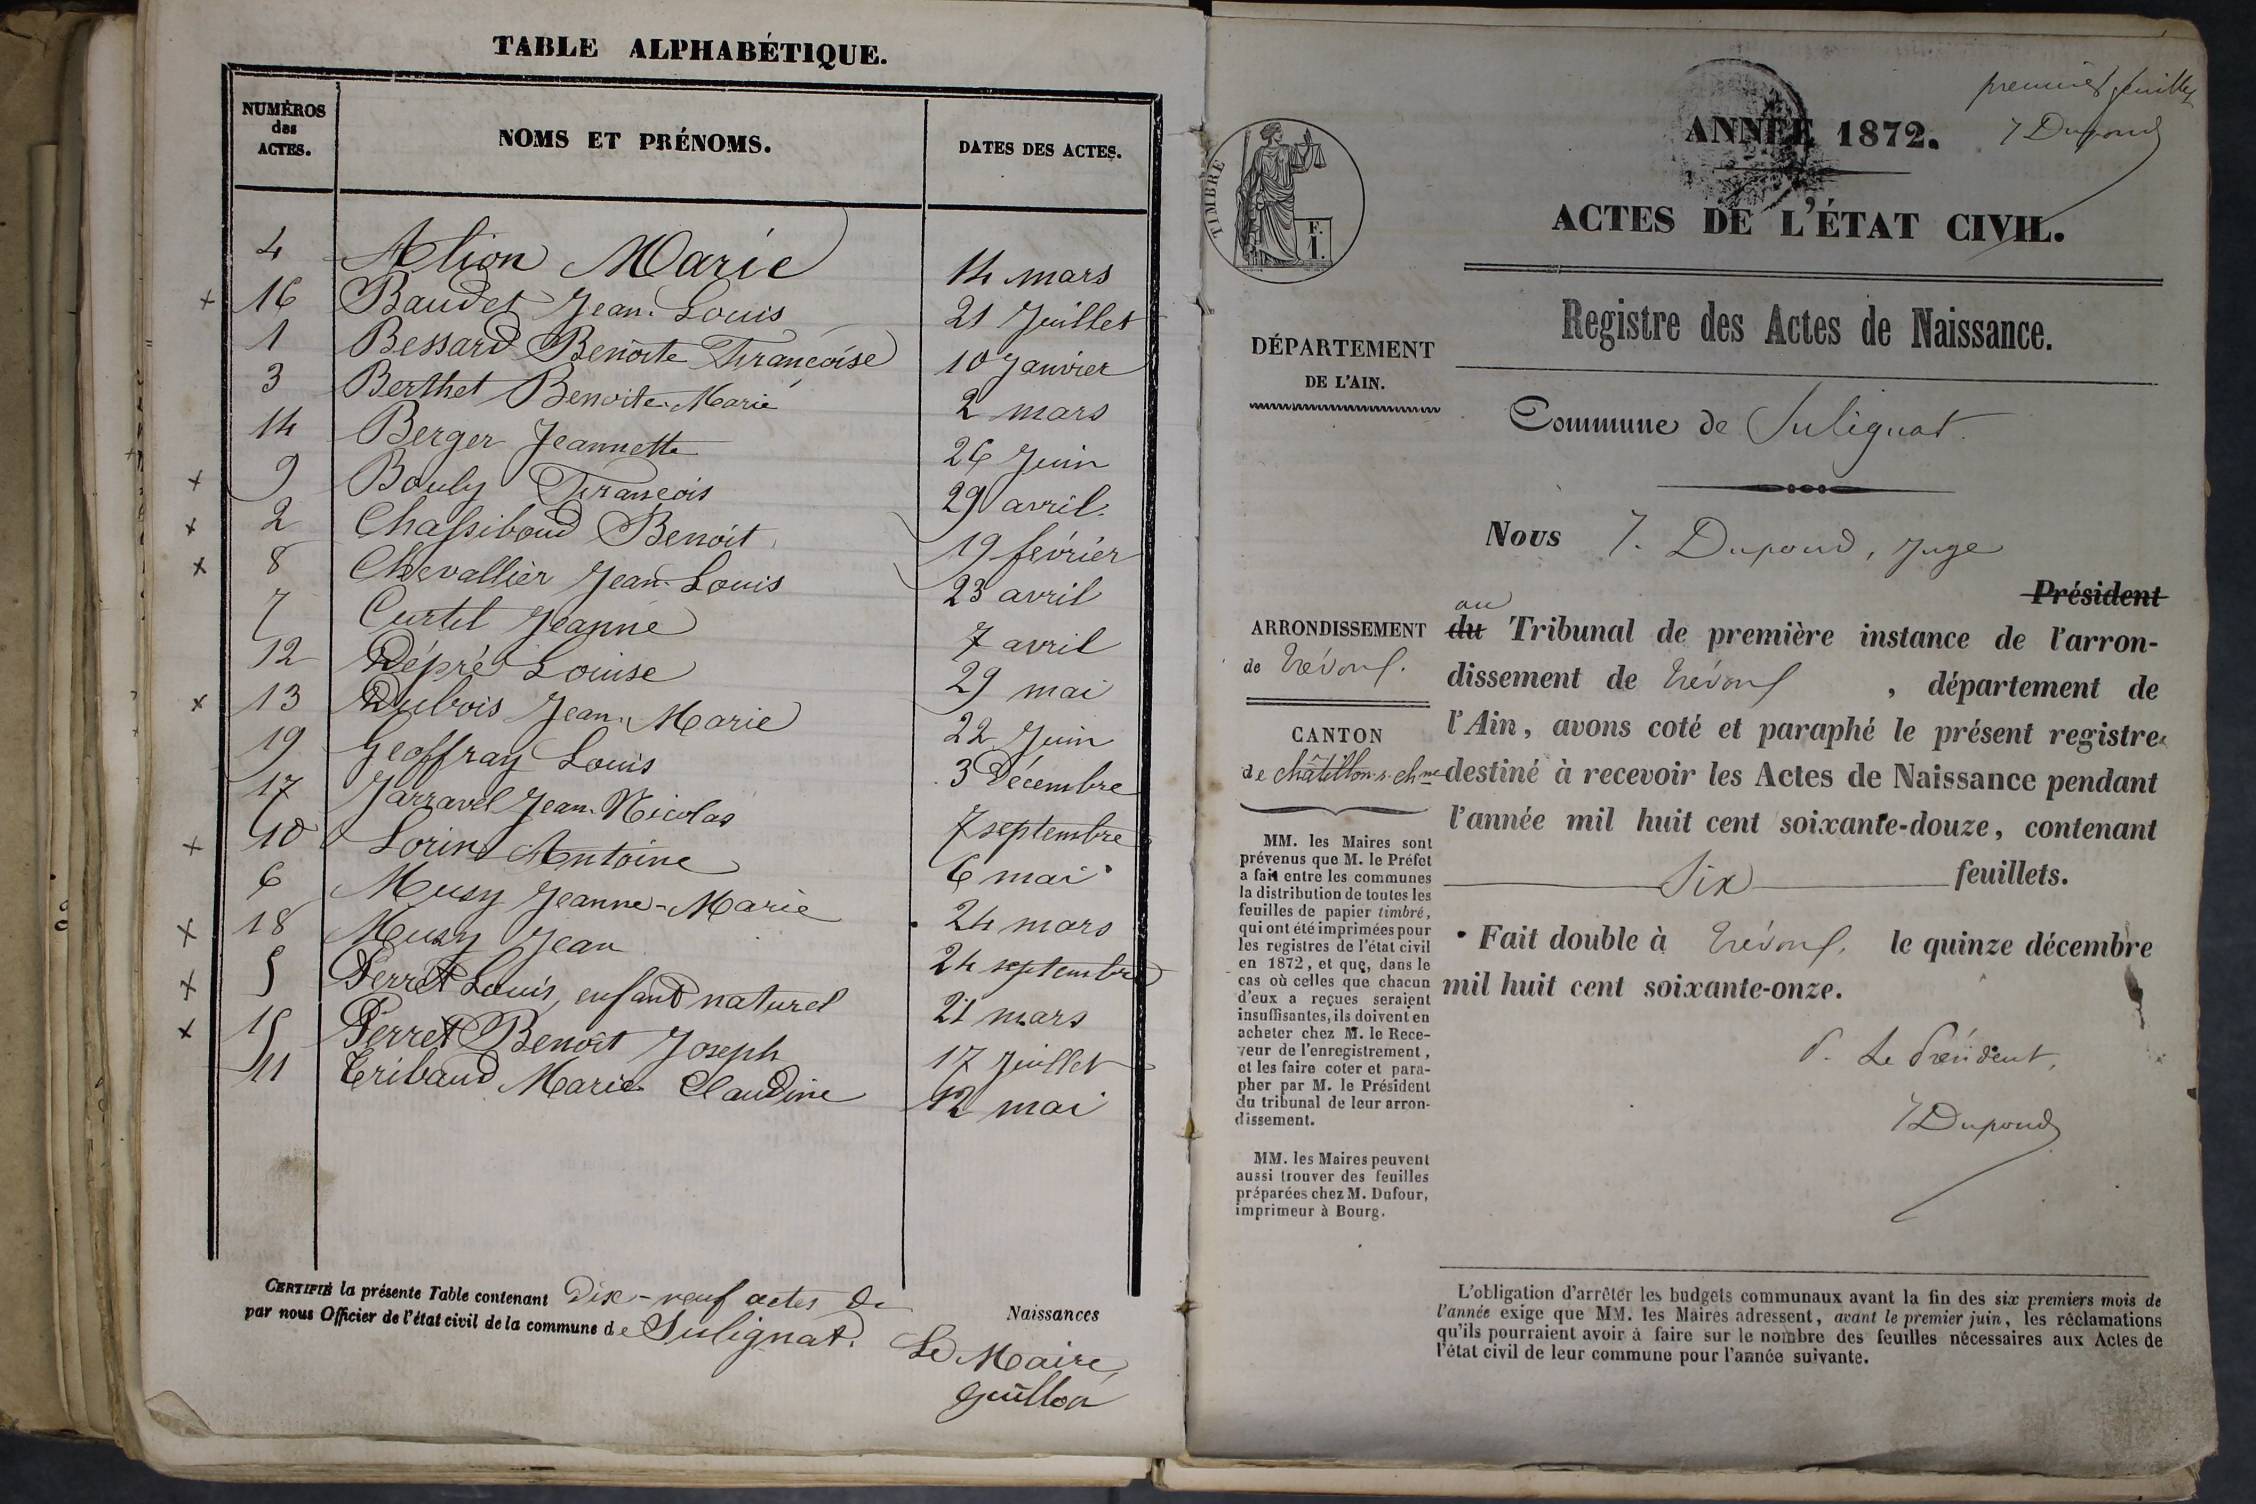 TABLE ALPHABÉTIQUE.
NUMÉROS des ACTES. NOMS ET PRÉNOMS. DATES DES ACTES.
4 Alion Marie 14 mars
+ 16 Baudet Jean-Louis 21 Juillet
1 Bessard Benoite Françoise 10 Janvier
3 Berthet Benoite-Marie 2 mars
14 Berger Jeannette 26 Juin
+ 9 Bouly François 29 avril.
+ 2 Chassiboud Benoit 19 février
+ 8 Chevallier Jean-Louis 23 avril
7 Curtil Jeanne 7 avril
12 Dépré Louise 29 mai
+ 13 Dubois Jean-Marie 22 Juin
19 Geoffray Louis 3 Décembre
17 Jarravel Jean-Nicolas 7 septembre
+ 10 Lorin Antoine 6 mai
6 Musy Jeanne-Marie 24 mars
+ 18 Musy Jean 24 septembre
+ 5 Perret Louis, enfant naturel 21 mars
+ 15 Perret Benoît Joseph 17 Juillet
11 Tribaud Marie Claudine 12 mai
CERTIFIÉ la présente Table contenant Dix-neuf actes de Naissances
par nous Officier de l'état civil de la commune de Sulignat.
Le Maire,
Guillon
premier feuillet
J Dupond
ANNÉE 1872.
ACTES DE L'ÉTAT CIVIL.
TIMBRE
F.
1.
Registre des Actes de Naissance.
DÉPARTEMENT
DE L'AIN.
Commune de Sulignat.
Nous J. Dupond, Juge
Président
au
ARRONDISSEMENT
de Trévoux.
CANTON
de Châtillon-s-Chne
MM. les Maires sont
prévenus que M. le Préfet
a fait entre les communes
la distribution de toutes les
feuilles de papier timbré,
qui ont été imprimées pour
les registres de l'état civil
en 1872, et que, dans le
cas où celles que chacun
d'eux a reçues seraient
insuffisantes, ils doivent en
acheter chez M. le Rece-
veur de l'enregistrement,
et les faire coter et para-
pher par M. le Président
du tribunal de leur arron-
dissement.
MM. les Maires peuvent
aussi trouver des feuilles
préparées chez M. Dufour,
imprimeur à Bourg.
du Tribunal de première instance de l'arron-
dissement de Trévoux, département de
l'Ain, avons coté et paraphé le présent registre
destiné à recevoir les Actes de Naissance pendant
l'année mil huit cent soixante-douze, contenant
Six feuillets.
Fait double à Trévoux, le quinze décembre
mil huit cent soixante-onze.
P. Le Président,
J Dupond
L'obligation d'arrêter les budgets communaux avant la fin des six premiers mois de
l'année exige que MM. les Maires adressent, avant le premier juin, les réclamations
qu'ils pourraient avoir à faire sur le nombre des feuilles nécessaires aux Actes de
l'état civil de leur commune pour l'année suivante.